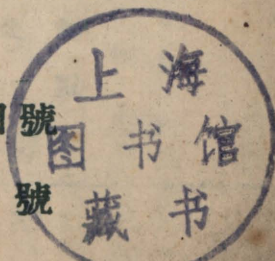 上海
图书馆
藏书
號
號